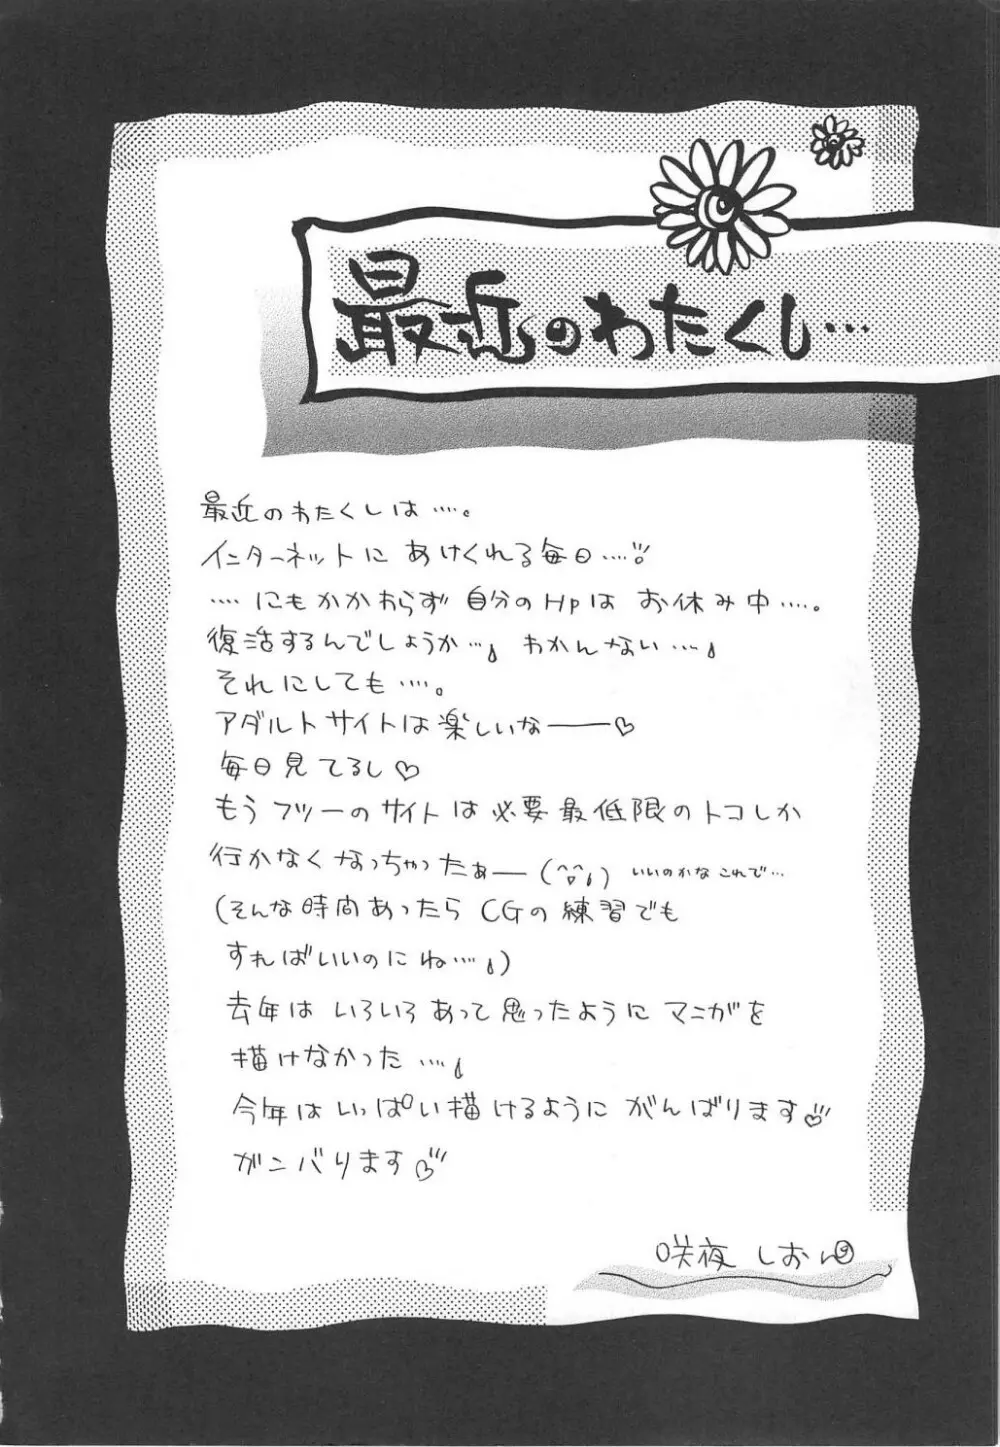 最近のわたくし…
最近のわたくしは‥‥。
インターネットにあけくれる毎日‥‥
‥‥にもかかわらず自分のHpはお休み中‥‥。
復活するんでしょうか‥‥ わかんない‥‥
それにしても‥‥。
アダルトサイトは楽しいなー♡
毎日見てるし♡
もうフツーのサイトは必要最低限のトコしか
行かなくなっちゃったぁー(^^;) いいのかなこれで‥‥
(そんな時間あったらCGの練習でも
すればいいのにね‥‥)
去年はいろいろあって思ったようにマンガを
描けなかった‥‥
今年はいっぱい描けるようにがんばります♡
ガンバります♡
咲夜しおん